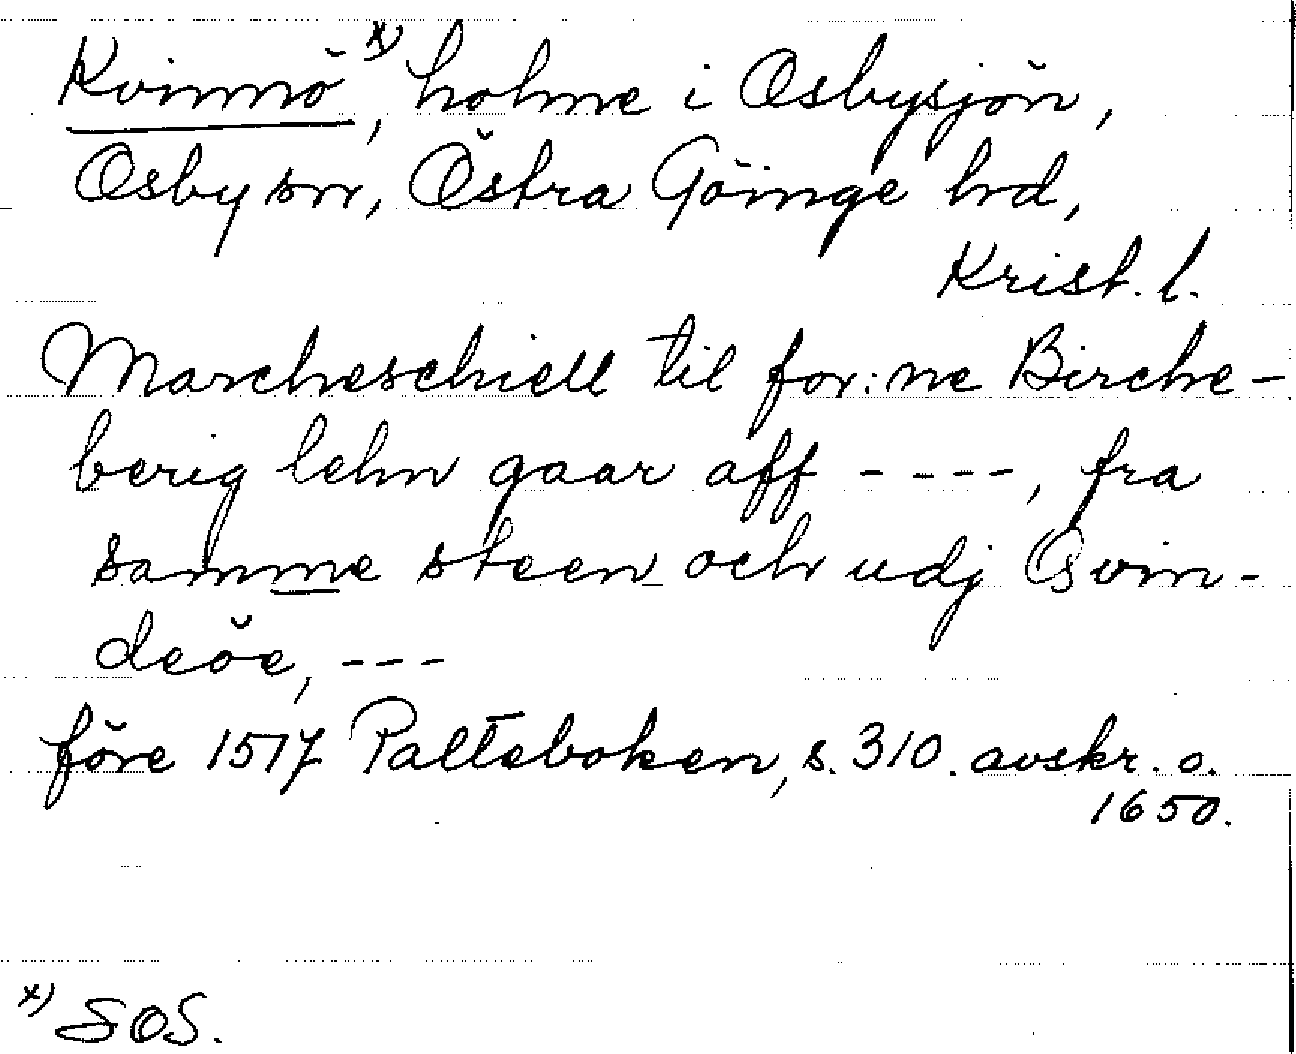 Kvinnö x), holme i Osbysjön,
Osby sn, Östra Göinge hd,
Krist. l.
Marcheschiell til for:ne Birche-
berig lehn gaar aff - - - -, fra
samme steen och udj Qvin-
deöe, - - -
före 1517 Palteboken, s. 310. avskr. o.
1650.
x) SOS.